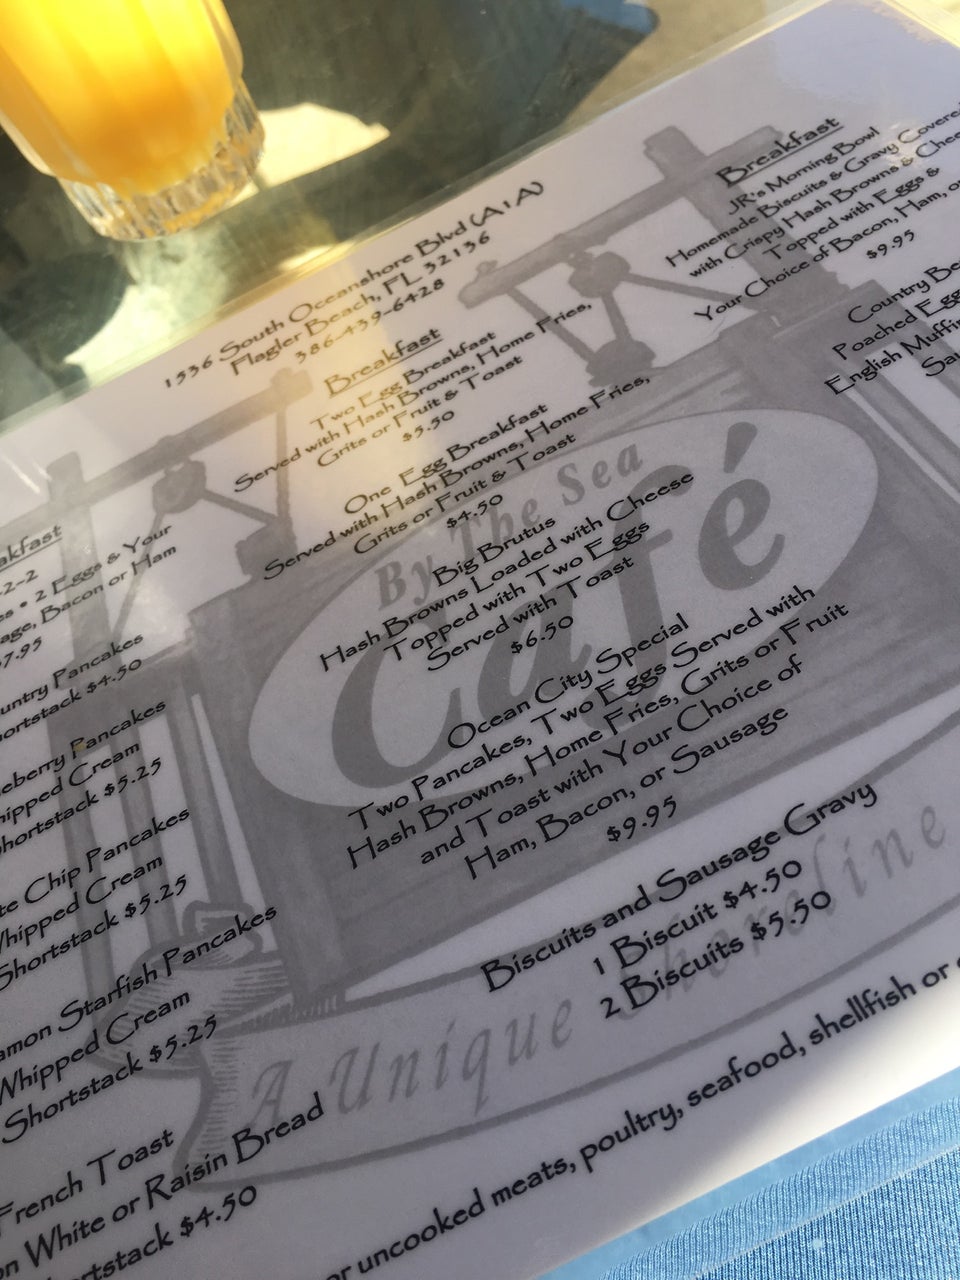 1536 South Oceanshore Blvd (A1A)
Flagler Beach, FL 32136
386-439-6428
2-2
2 Eggs & Your
Bacon or Ham
7.95
Pancakes
$4.50
Pancakes
Cream
$5.25
Chip Pancakes
Whipped Cream
Shortstack $5.25
Starfish Pancakes
Whipped Cream
Shortstack $5.25
French Toast
White or Raisin Bread
$4.50
Breakfast
Two Egg Breakfast
Served with Hash Browns, Home Fries,
Grits or Fruit & Toast
$5.50
One Egg Breakfast
Served with Hash Browns, Home Fries,
Grits or Fruit & Toast
$4.50
Big Brutus
Hash Browns Loaded with Cheese
Topped with Two Eggs
Served with Toast
$6.50
Ocean City Special
Two Pancakes, Two Eggs Served with
Hash Browns, Home Fries, Grits or Fruit
and Toast with Your Choice of
Ham, Bacon, or Sausage
$9.95
Biscuits and Sausage Gravy
1 Biscuit $4.50
2 Biscuits $5.50
Breakfast
JR's Morning Bowl
Homemade Biscuits & Gravy Covered
with Crispy Hash Browns &
Topped with Eggs &
Your Choice of Bacon, Ham,
$9.95
Country
Poached
English
By The Sea
Café
A Unique Shoreline
or uncooked meats, poultry, seafood, shellfish or